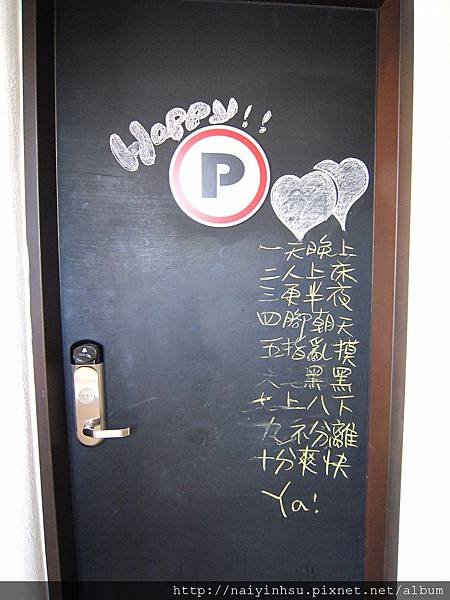 Happy!!
P
一天晚上
二人上床
三更半夜
四腳朝天
五指亂摸
六
黑黑
七上八下
九不分離
十分爽快
Ya!
http://naiyinhsu.pixnet.net/album